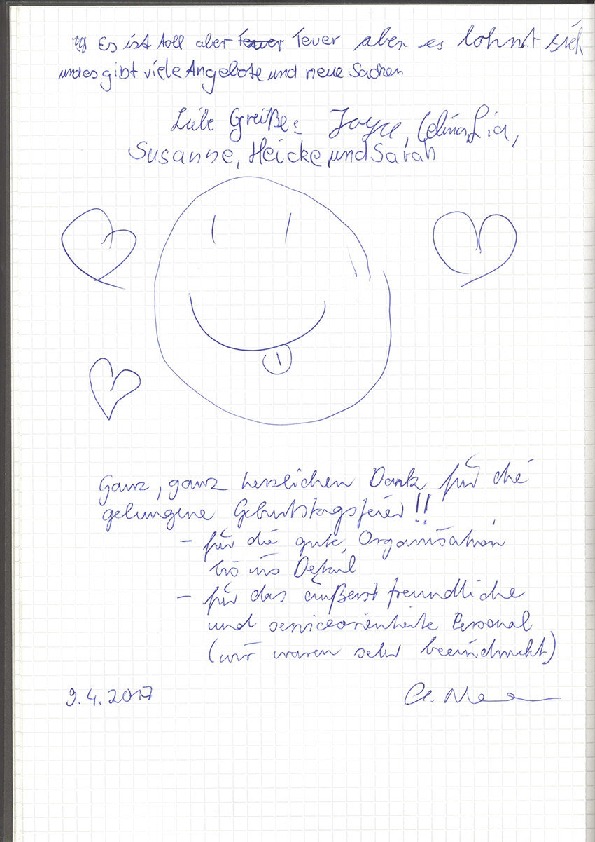 Es ist toll aber Teuer aber es lohnt sich
und es gibt viele Angebote und neue Sachen
Liebe Greiße: Joyce, Celina, Lia,
Susanne, Heicke und Sarah
Ganz, ganz herzlichen Dank für die
gelungene Geburtstagsfeier!!
- für die gute Organisation
bis ins Detail
- für das äußerst freundliche
und serviceorientierte Personal
(wir waren sehr beeindruckt)
9.4.2017